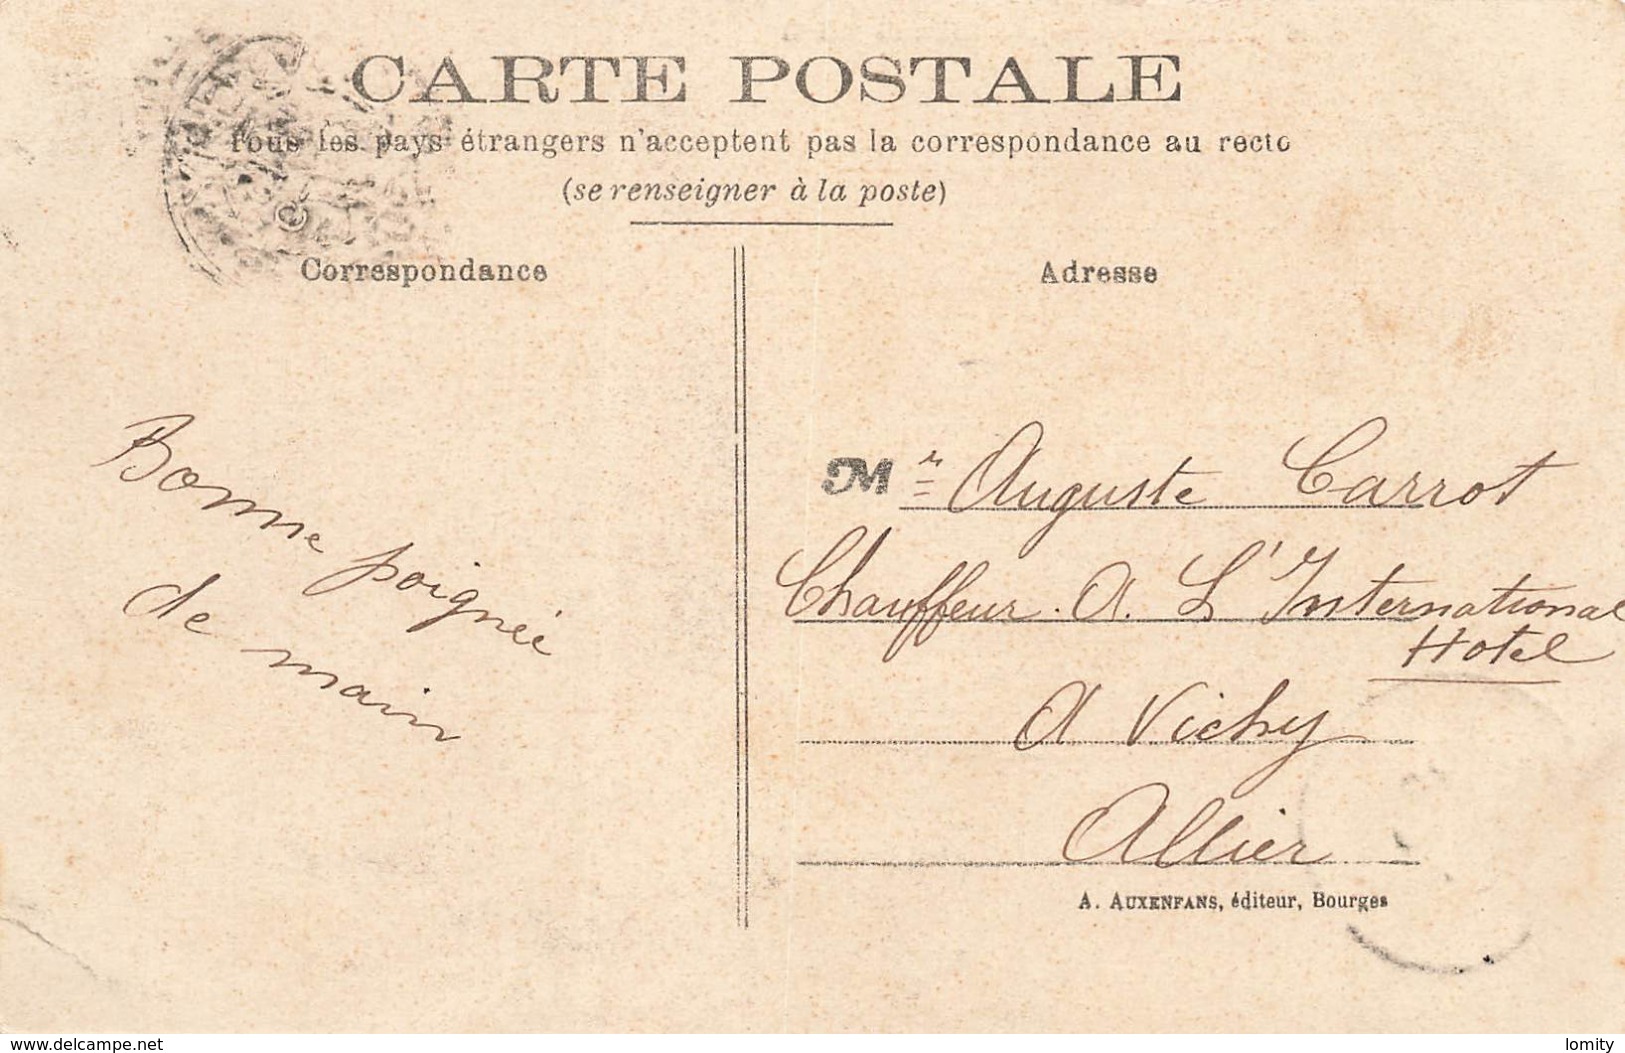 CARTE POSTALE
Tous les pays étrangers n'acceptent pas la correspondance au recto
(se renseigner à la poste)
Correspondance
Adresse
Bonne poignée
de main
Mr Auguste Carrot
Chauffeur. A. L'International
Hotel
A Vichy
Allier
A. AUXENFANS, éditeur, Bourges
www.delcampe.net
lomity